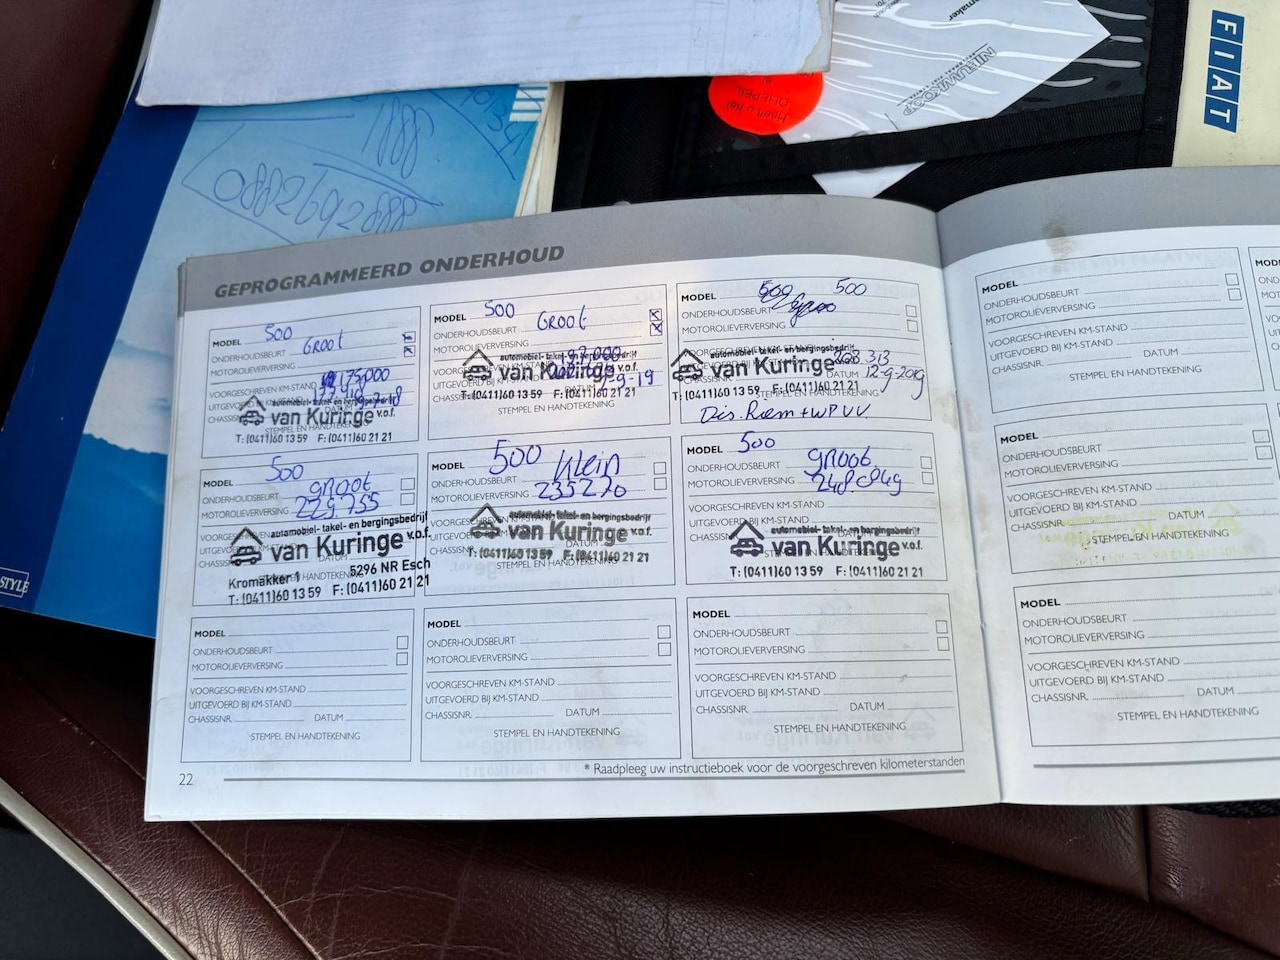 OLIEPEIL
NIEUWKOOP
FIAT
1888
0882692888
STYLE
GEPROGRAMMEERD ONDERHOUD
MODEL 500
ONDERHOUDSBEURT Groot
MOTOROLIEVERVERSING
VOORGESCHREVEN KM-STAND 175000
UITGEVOERD BIJ KM-STAND
CHASSISNR.
automobiel- takel- en bergingsbedrijf
van Kuringe v.o.f.
STEMPEL EN HANDTEKENING
T: (0411)60 13 59 F: (0411)60 21 21
MODEL 500
ONDERHOUDSBEURT Groot
MOTOROLIEVERVERSING
automobiel- takel- en bergingsbedrijf
UITGEVOERD BIJ KM-STAND
van Kuringe v.o.f.
CHASSISNR. -9-19
T:(0411)60 13 59 F:(0411)60 21 21
STEMPEL EN HANDTEKENING
MODEL 500 500
ONDERHOUDSBEURT
MOTOROLIEVERVERSING
automobiel- takel- en bergingsbedrijf
van Kuringe v.o.f.
DATUM 12-9-2019
T:(0411)60 13 59 F:(0411)60 21 21
STEMPEL EN HANDTEKENING
Dis. Riem + WP VV.
MODEL 500
ONDERHOUDSBEURT groot
MOTOROLIEVERVERSING 229.755
automobiel- takel- en bergingsbedrijf
van Kuringe v.o.f.
Kromakker 1 5296 NR Esch
STEMPEL EN HANDTEKENING
T: (0411)60 13 59 F: (0411)60 21 21
MODEL 500 Klein
ONDERHOUDSBEURT
MOTOROLIEVERVERSING 235270
automobiel- takel- en bergingsbedrijf
van Kuringe v.o.f.
T:(0411)60 13 59 F:(0411)60 21 21
STEMPEL EN HANDTEKENING
MODEL 500
ONDERHOUDSBEURT groot
MOTOROLIEVERVERSING
VOORGESCHREVEN KM-STAND
UITGEVOERD BIJ KM-STAND
automobiel- takel- en bergingsbedrijf
van Kuringe v.o.f.
T: (0411)60 13 59 F: (0411)60 21 21
MODEL
ONDERHOUDSBEURT
MOTOROLIEVERVERSING
VOORGESCHREVEN KM-STAND
UITGEVOERD BIJ KM-STAND
CHASSISNR. DATUM
STEMPEL EN HANDTEKENING
MODEL
ONDERHOUDSBEURT
MOTOROLIEVERVERSING
VOORGESCHREVEN KM-STAND
UITGEVOERD BIJ KM-STAND
CHASSISNR. DATUM
STEMPEL EN HANDTEKENING
MODEL
ONDERHOUDSBEURT
MOTOROLIEVERVERSING
VOORGESCHREVEN KM-STAND
UITGEVOERD BIJ KM-STAND
CHASSISNR. DATUM
STEMPEL EN HANDTEKENING
22
* Raadpleeg uw instructieboek voor de voorgeschreven kilometerstanden
MODEL
ONDERHOUDSBEURT
MOTOROLIEVERVERSING
VOORGESCHREVEN KM-STAND
UITGEVOERD BIJ KM-STAND
CHASSISNR. DATUM
STEMPEL EN HANDTEKENING
MODEL
ONDERHOUDSBEURT
MOTOROLIEVERVERSING
VOORGESCHREVEN KM-STAND
UITGEVOERD BIJ KM-STAND
CHASSISNR. DATUM
STEMPEL EN HANDTEKENING
MODEL
ONDERHOUDSBEURT
MOTOROLIEVERVERSING
VOORGESCHREVEN KM-STAND
UITGEVOERD BIJ KM-STAND
CHASSISNR. DATUM
STEMPEL EN HANDTEKENING